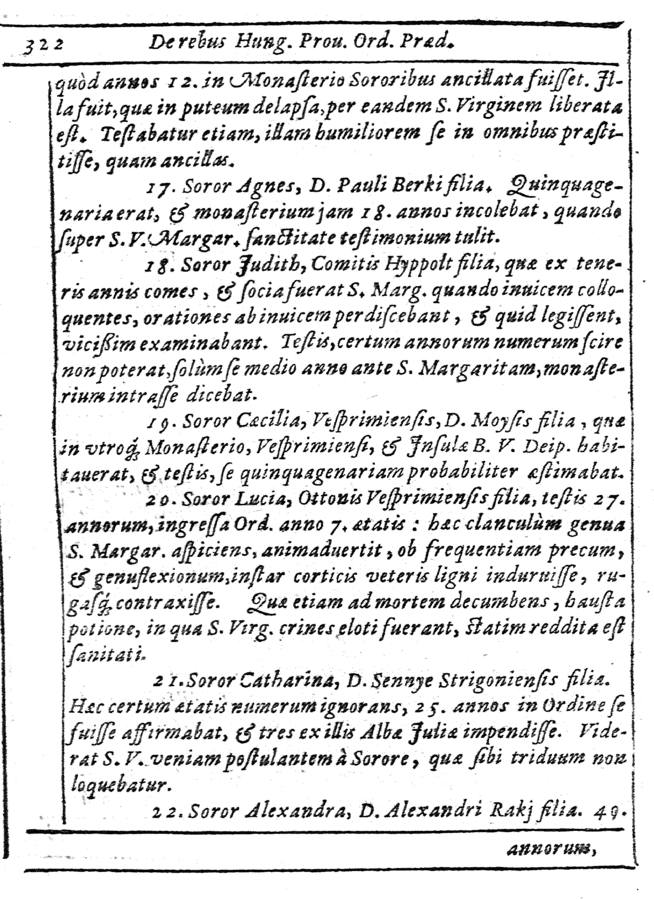 322 De rebus Hung. Prou. Ord. Præd.
quòd annos 12. in Monaſterio Sororibus ancillata fuiſſet. Il-
la fuit, quæ in puteum delapſa, per eandem S. Virginem liberata
eſt. Teſtabatur etiam, illam humiliorem ſe in omnibus præſti-
tiſſe, quam ancillas.
17. Soror Agnes, D. Pauli Berki filia. Quinquage-
naria erat, & monaſterium jam 18. annos incolebat, quando
ſuper S. V. Margar. ſanctitate teſtimonium tulit.
18. Soror Judith, Comitis Hyppolt filia, quæ ex tene-
ris annis comes, & ſocia fuerat S. Marg. quando inuicem collo-
quentes, orationes ab inuicem perdiſcebant, & quid legiſſent,
vicißim examinabant. Teſtis, certum annorum numerum ſcire
non poterat, ſolùm ſe medio anno ante S. Margaritam, monaſte-
rium intraſſe dicebat.
19. Soror Cæcilia, Veſprimienſis, D. Moyſis filia, quæ
in vtroq́; Monaſterio, Veſprimienſi, & Inſulæ B. V. Deip. habi-
tauerat, & teſtis, ſe quinquagenariam probabiliter æſtimabat.
20. Soror Lucia, Ottonis Veſprimienſis filia, teſtis 27.
annorum, ingreſſa Ord. anno 7. ætatis : hæc clanculùm genua
S. Margar. aſpiciens, animaduertit, ob frequentiam precum,
& genuflexionum, inſtar corticis veteris ligni induruiſſe, ru-
gaſq́; contraxiſſe. Quæ etiam ad mortem decumbens, hauſta
potione, in qua S. Virg. crines eloti fuerant, ſtatim reddita eſt
ſanitati.
21. Soror Catharina, D. Sennye Strigonienſis filia.
Hæc certum ætatis numerum ignorans, 25. annos in Ordine ſe
fuiſſe affirmabat, & tres ex illis Albæ Juliæ impendiſſe. Vide-
rat S. V. veniam poſtulantem à Sorore, quæ ſibi triduum non
loquebatur.
22. Soror Alexandra, D. Alexandri Rakj filia. 49.
annorum,